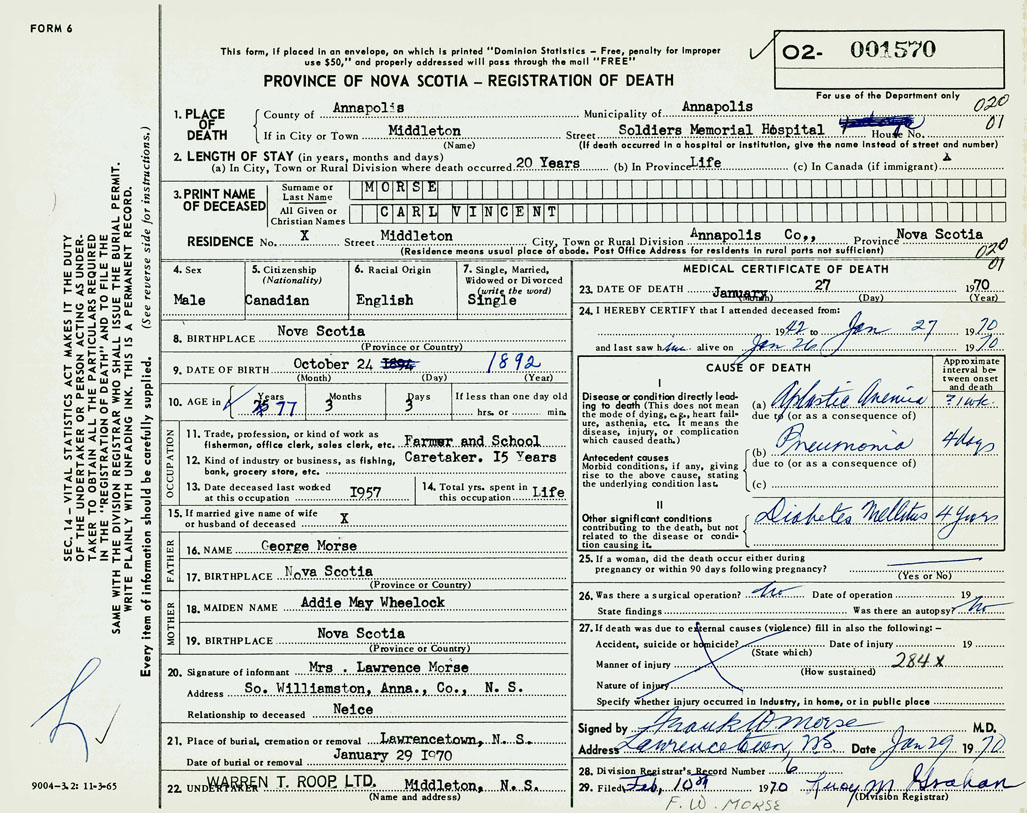 FORM 6
This form, if placed in an envelope, on which is printed "Dominion Statistics – Free, penalty for improper
use $50," and properly addressed will pass through the mail "FREE"
O2- 001570
PROVINCE OF NOVA SCOTIA – REGISTRATION OF DEATH
For use of the Department only
020
01
1. PLACE OF DEATH
County of Annapolis Municipality of Annapolis
If in City or Town Middleton Street Soldiers Memorial Hospital House No.
(Name) (If death occurred in a hospital or institution, give the name instead of street and number)
2. LENGTH OF STAY (in years, months and days)
(a) In City, Town or Rural Division where death occurred 20 Years (b) In Province Life (c) In Canada (if immigrant)
3. PRINT NAME OF DECEASED
Surname or Last Name MORSE
All Given or Christian Names CARL VINCENT
RESIDENCE No. X Street Middleton City, Town or Rural Division Annapolis Co,, Province Nova Scotia
(Residence means usual place of abode. Post Office Address for residents in rural parts not sufficient)
020
01
4. Sex
Male
5. Citizenship
(Nationality)
Canadian
6. Racial Origin
English
7. Single, Married,
Widowed or Divorced
(write the word)
Single
8. BIRTHPLACE Nova Scotia
(Province or Country)
9. DATE OF BIRTH October 24 1894 1892
(Month) (Day) (Year)
10. AGE in Years 75 77 Months 3 Days 3 If less than one day old
hrs. or min.
OCCUPATION
11. Trade, profession, or kind of work as
fisherman, office clerk, sales clerk, etc. Farmer and School
12. Kind of industry or business, as fishing,
bank, grocery store, etc. Caretaker. I5 Years
13. Date deceased last worked
at this occupation I957
14. Total yrs. spent in
this occupation Life
15. If married give name of wife
or husband of deceased X
FATHER
16. NAME George Morse
17. BIRTHPLACE Nova Scotia
(Province or Country)
MOTHER
18. MAIDEN NAME Addie May Wheelock
19. BIRTHPLACE Nova Scotia
(Province or Country)
20. Signature of informant Mrs . Lawrence Morse
Address So. Williamston, Anna., Co., N. S.
Relationship to deceased Neice
21. Place of burial, cremation or removal Lawrencetown, N. S.
Date of burial or removal January 29 I970
22. UNDERTAKER WARREN T. ROOP, LTD. Middleton, N. S.
(Name and address)
MEDICAL CERTIFICATE OF DEATH
23. DATE OF DEATH January 27 1970
(Month) (Day) (Year)
24. I HEREBY CERTIFY that I attended deceased from:
1942 to Jan 27 1970
and last saw him alive on Jan 26 1970
CAUSE OF DEATH
Approximate
interval be-
tween onset
and death
I
Disease or condition directly lead-
ing to death (This does not mean
the mode of dying, e.g., heart fail-
ure, asthenia, etc. It means the
disease, injury, or complication
which caused death.)
(a) Aplastic Anemia ? 1 wk.
due to (or as a consequence of)
(b) Pneumonia 4 days
due to (or as a consequence of)
Antecedent causes
Morbid conditions, if any, giving
rise to the above cause, stating
the underlying condition last.
(c)
II
Other significant conditions
contributing to the death, but not
related to the disease or condi-
tion causing it.
Diabetes Mellitus 4 Years
25. If a woman, did the death occur either during
pregnancy or within 90 days following pregnancy?
(Yes or No)
26. Was there a surgical operation? No Date of operation 19
State findings Was there an autopsy? No
27. If death was due to external causes (violence) fill in also the following: –
Accident, suicide or homicide? Date of injury 19
(State which)
Manner of injury 284 x
(How sustained)
Nature of injury
Specify whether injury occurred in Industry, in home, or in public place
Signed by Frank W Morse M.D.
Address Lawrencetown, NS Date Jan 29 1970
28. Division Registrar's Record Number 6
29. Filed Feb, 10th 1970 Graham
(Division Registrar)
F. W. MORSE
SEC. 14 – VITAL STATISTICS ACT MAKES IT THE DUTY
OF THE UNDERTAKER OR PERSON ACTING AS UNDER-
TAKER TO OBTAIN ALL THE PARTICULARS REQUIRED
IN THE "REGISTRATION OF DEATH" AND TO FILE THE
SAME WITH THE DIVISION REGISTRAR WHO SHALL ISSUE THE BURIAL PERMIT.
WRITE PLAINLY WITH UNFADING INK. THIS IS A PERMANENT RECORD.
Every item of information should be carefully supplied. (See reverse side for instructions.)
9004-3.2: 11-3-65